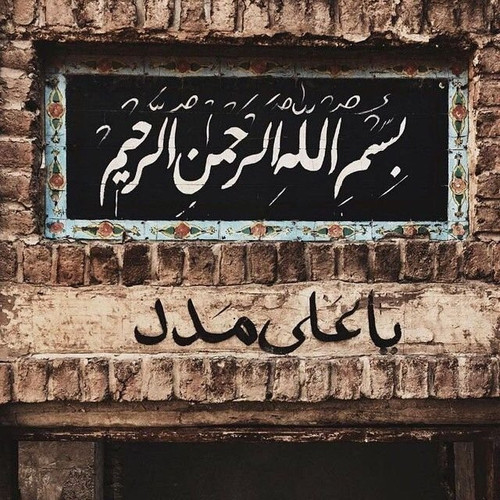 بِسْمِ اللهِ الرَّحْمَنِ الرَّحِیْمِ
یا عَلی مَدَد